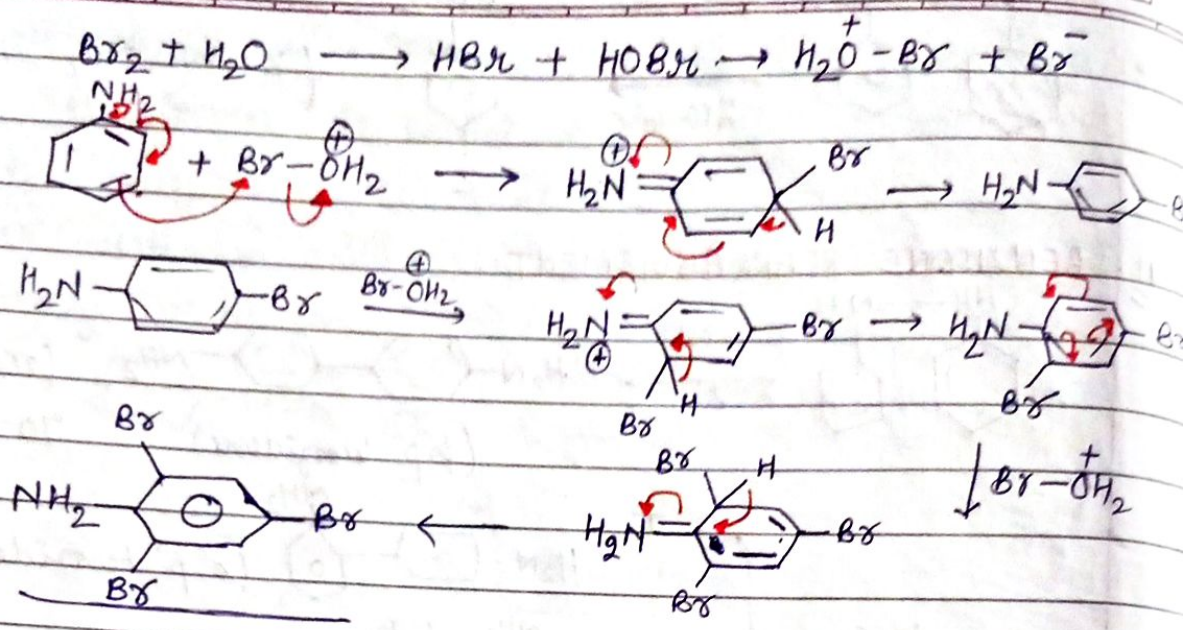 Br2 + H2O ⟶ HBr + HOBr → H2O⁺-Br + Br⁻
NH2
+ Br-OH2 ⊕ ⟶ H2N ⊕ Br H ⟶ H2N
H2N Br Br-OH2 ⊕ ⟶ H2N ⊕ Br H Br ⟶ H2N Br Br
Br Br H Br-OH2 +
NH2 Br ⟵ H2N Br
Br Br